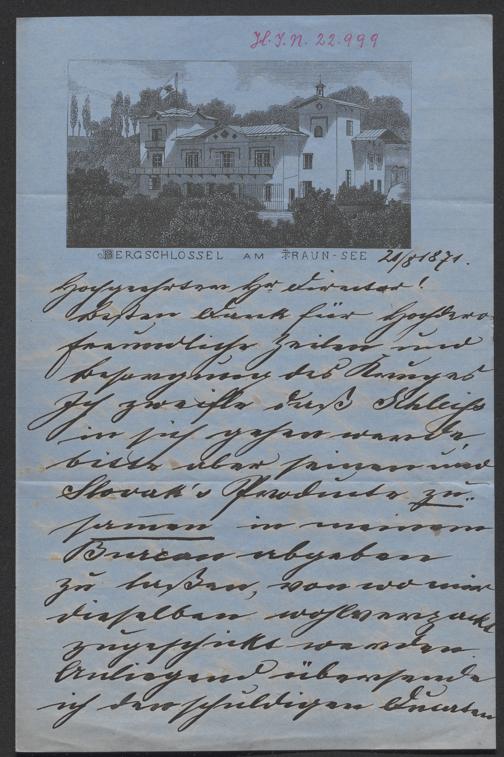 H. I. N. 22.999
BERGSCHLÖSSEL AM TRAUN-SEE
21/8 1871.
Hochgeehrter Hr Director!
Besten Dank für Hochdero
freundliche Zeilen und
Besorgung des Kruges
Ich zweifle daß Schleiss
in sich gehen werde,
bitte aber seinen und
Slovak's Producte zu-
sam̄en in meinem
Bureau abgeben
zu laßen, von wo mir
dieselben wohlverpackt
zugeschickt werden.
Anliegend übersende
ich den schuldigen Ducaten